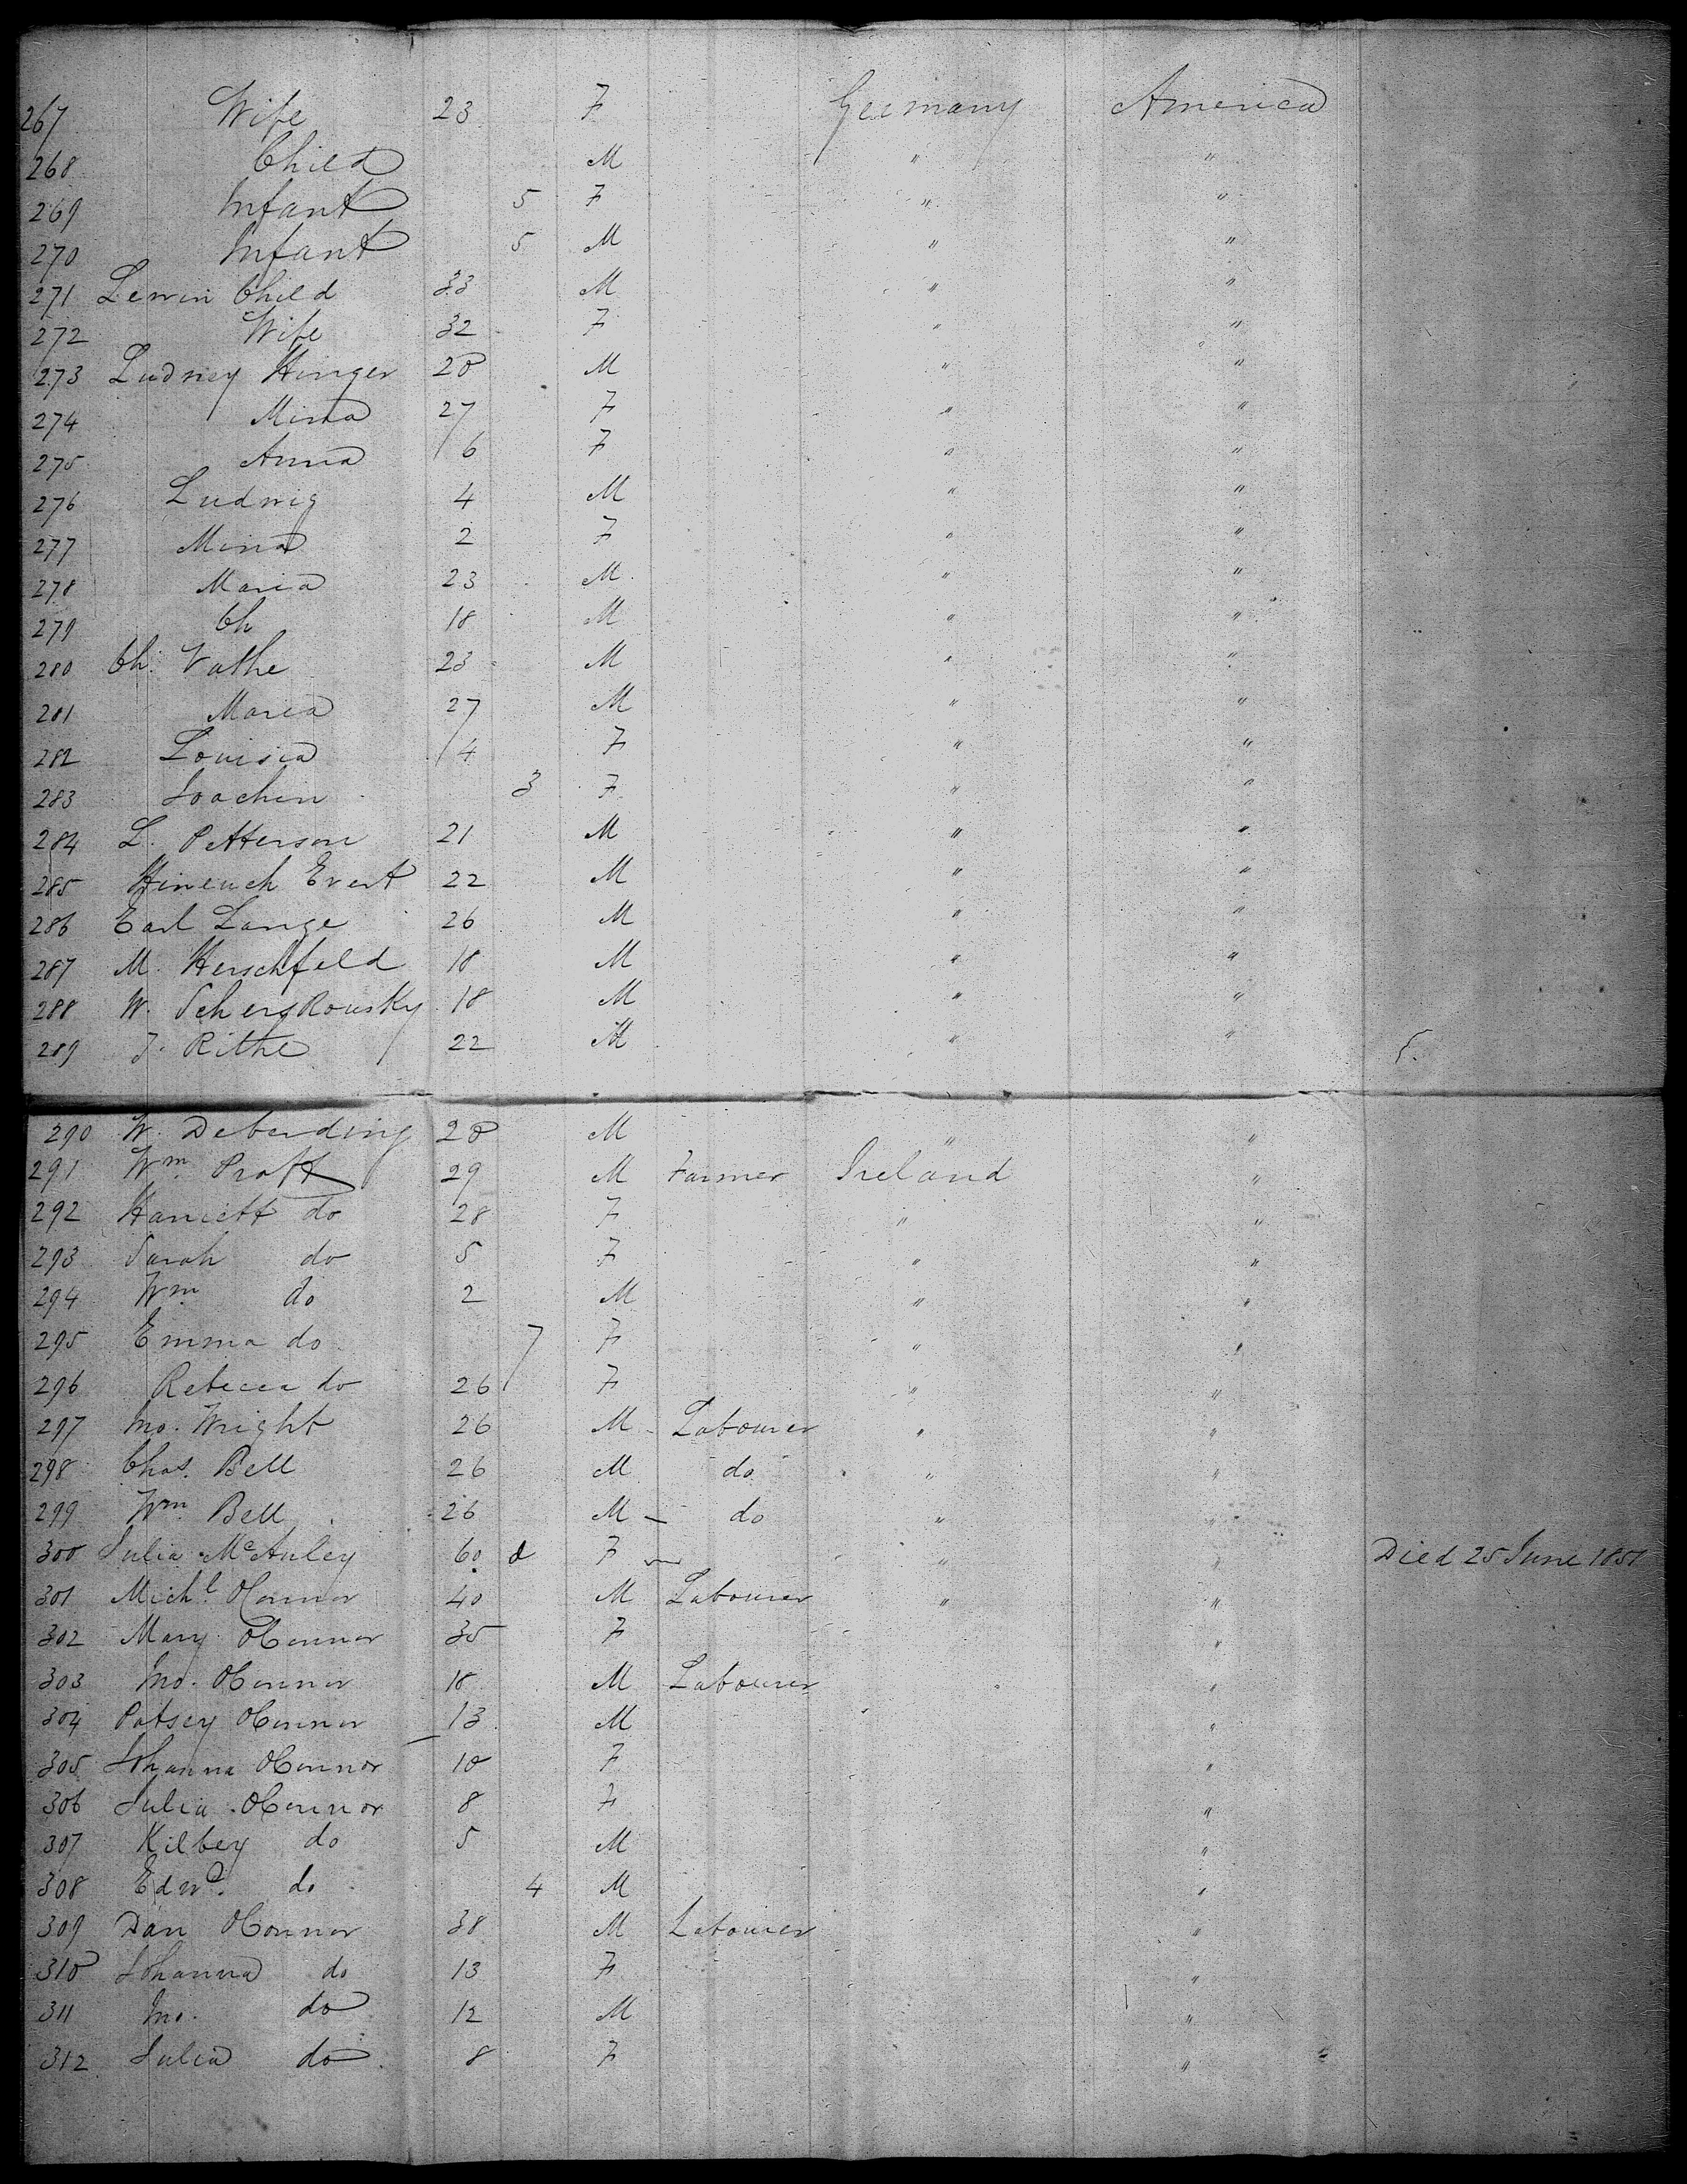 267 Wife 23 F Germany America
268 Child M " "
269 Infant 5 F " "
270 Infant 5 M " "
271 Lewin Child 33 M " "
272 Wife 32 F " "
273 Ludney Hinger 28 M " "
274 Mina 27 F " "
275 Anna 6 F " "
276 Ludwig 4 M " "
277 Mina 2 F " "
278 Maria 23 M " "
279 Ch 18 M " "
280 Ch. Vathe 23 M " "
281 Maria 27 M " "
282 Louisia 4 F " "
283 Joachin 3 F " "
284 L. Petterson 21 M " "
285 Hineuch Evert 22 M " "
286 Earl Lange 26 M " "
287 M. Herschfeld 18 M " "
288 W. 18 M " "
289 J. Rithe 22 M " "
290 W. Deberding 28 M " "
291 Wm Pratt 29 M Farmer Ireland "
292 Harriett do 28 F " "
293 Sarah do 5 F " "
294 Wm do 2 M " "
295 Emma do 7 F " "
296 Rebecca do 26 F " "
297 Jno. Wright 26 M Labourer " "
298 Chas. Bell 26 M do " "
299 Wm Bell 26 M – do " "
300 Julia McAuley 60 d F " " Died 25 June 1851
301 Michl OConnor 40 M Labourer " "
302 Mary OConnor 35 F "
303 Jno. OConnor 18 M Labourer " "
304 Patsey OConnor 13 M "
305 Johanna OConnor 10 F "
306 Julia OConnor 8 F "
307 Kilbey do 5 M "
308 Edwd. do 4 M "
309 Dan OConnor 38 M Labourer "
310 Johanna do 13 F "
311 Jno. do 12 M "
312 Julia do 8 F "